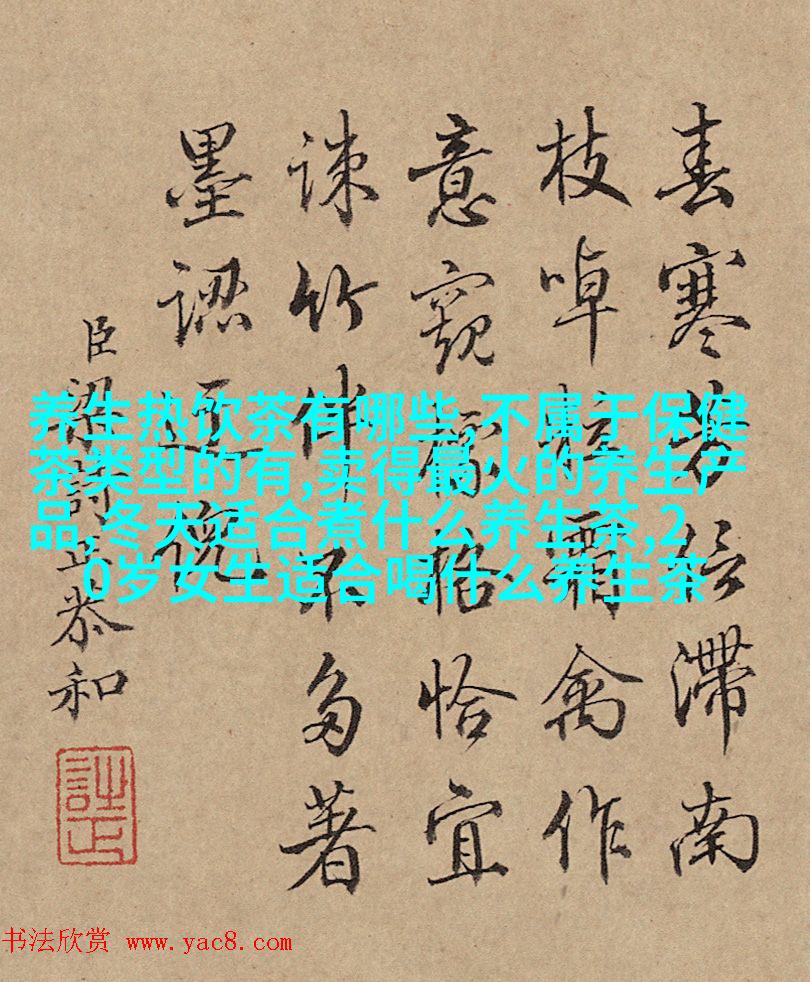 春寒芳信滞南
枝啅霜禽作
意窺恰宜
竹伴不多著
墨
臣梁詩正恭和
养生热饮茶有哪些,不属于保健
茶类型的有,卖得最火的养生产
品,冬天适合煮什么养生茶,2
0岁女生适合喝什么养生茶
书法欣赏 www.yac8.com